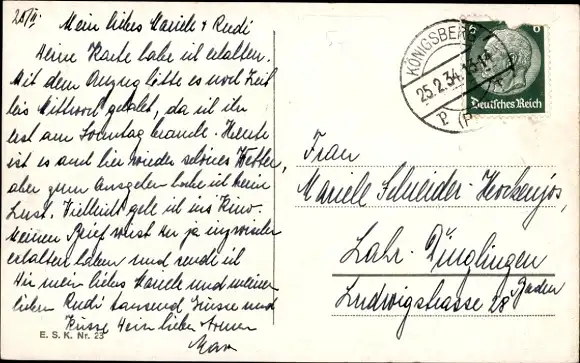 25/II.
Mein liebes Mariele & Rudi
Deine Karte habe ich erhalten.
Mit dem Anzug hätte es noch Zeit
bis Mittwoch gehabt, da ich ihn
erst am Sonntag brauche. Heute
ist es auch hier wieder schönes Wetter,
aber zum Ausgehen habe ich keine
Lust. Vielleicht gehe ich ins Kino.
Meinen Brief wirst Du ja inzwischen
erhalten haben und sende ich
Dir mein liebes Mariele und meinen
lieben Rudi tausend Grüsse und
Küsse Dein lieber
Max
E. S. K. Nr. 23
KÖNIGSBERG
25.2.34
P (P
Deutsches Reich
Frau
Mariele Schneider-Hockenjos,
Lahr-Dinglingen
Baden
Ludwigstrasse 28